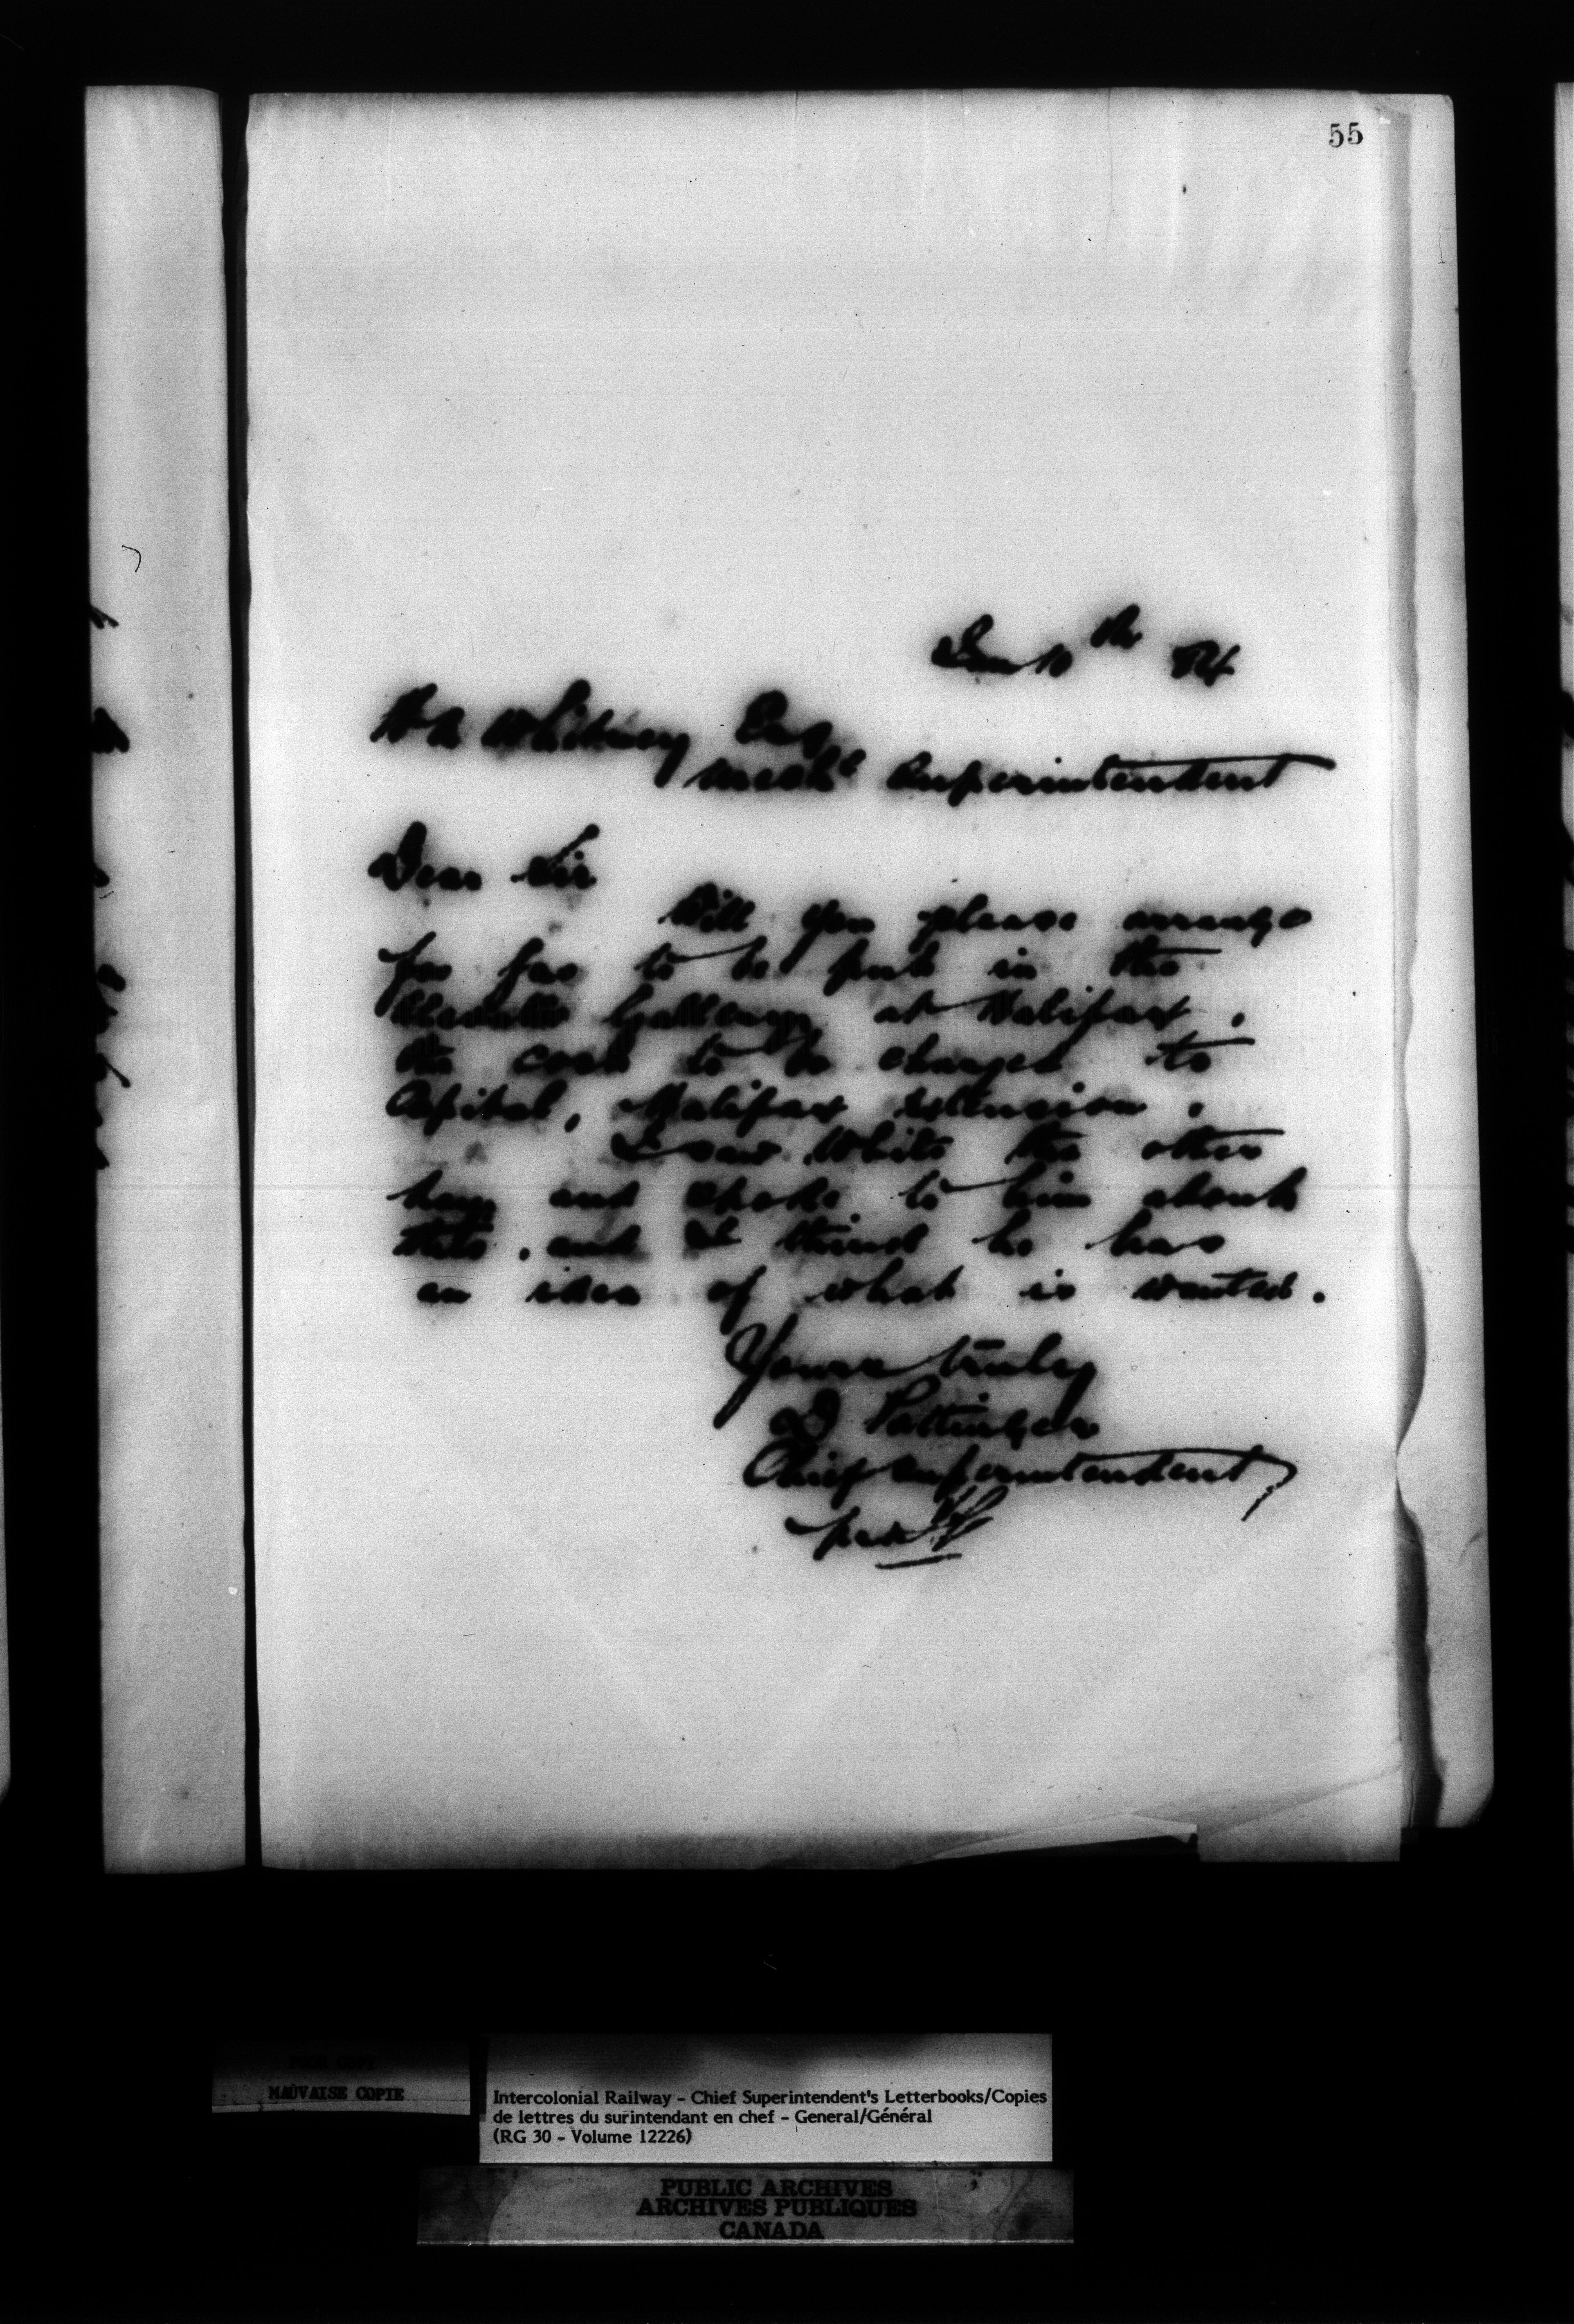 55
Jan 10th 84
H A Whitney Esq
Mechl Superintendent
Dear Sir
Will you please arrange
for gas to be put in the
Elevator Gallery at Halifax.
the cost to be charged to
Capital, Halifax Extension.
I saw White the other
day and spoke to him about
this, and I think he has
an idea of what is wanted.
Yours truly
D Pottinger
Chief Superintendent
per
MAUVAISE COPIE
Intercolonial Railway - Chief Superintendent's Letterbooks/Copies
de lettres du surintendant en chef - General/Général
(RG 30 - Volume 12226)
PUBLIC ARCHIVES
ARCHIVES PUBLIQUES
CANADA